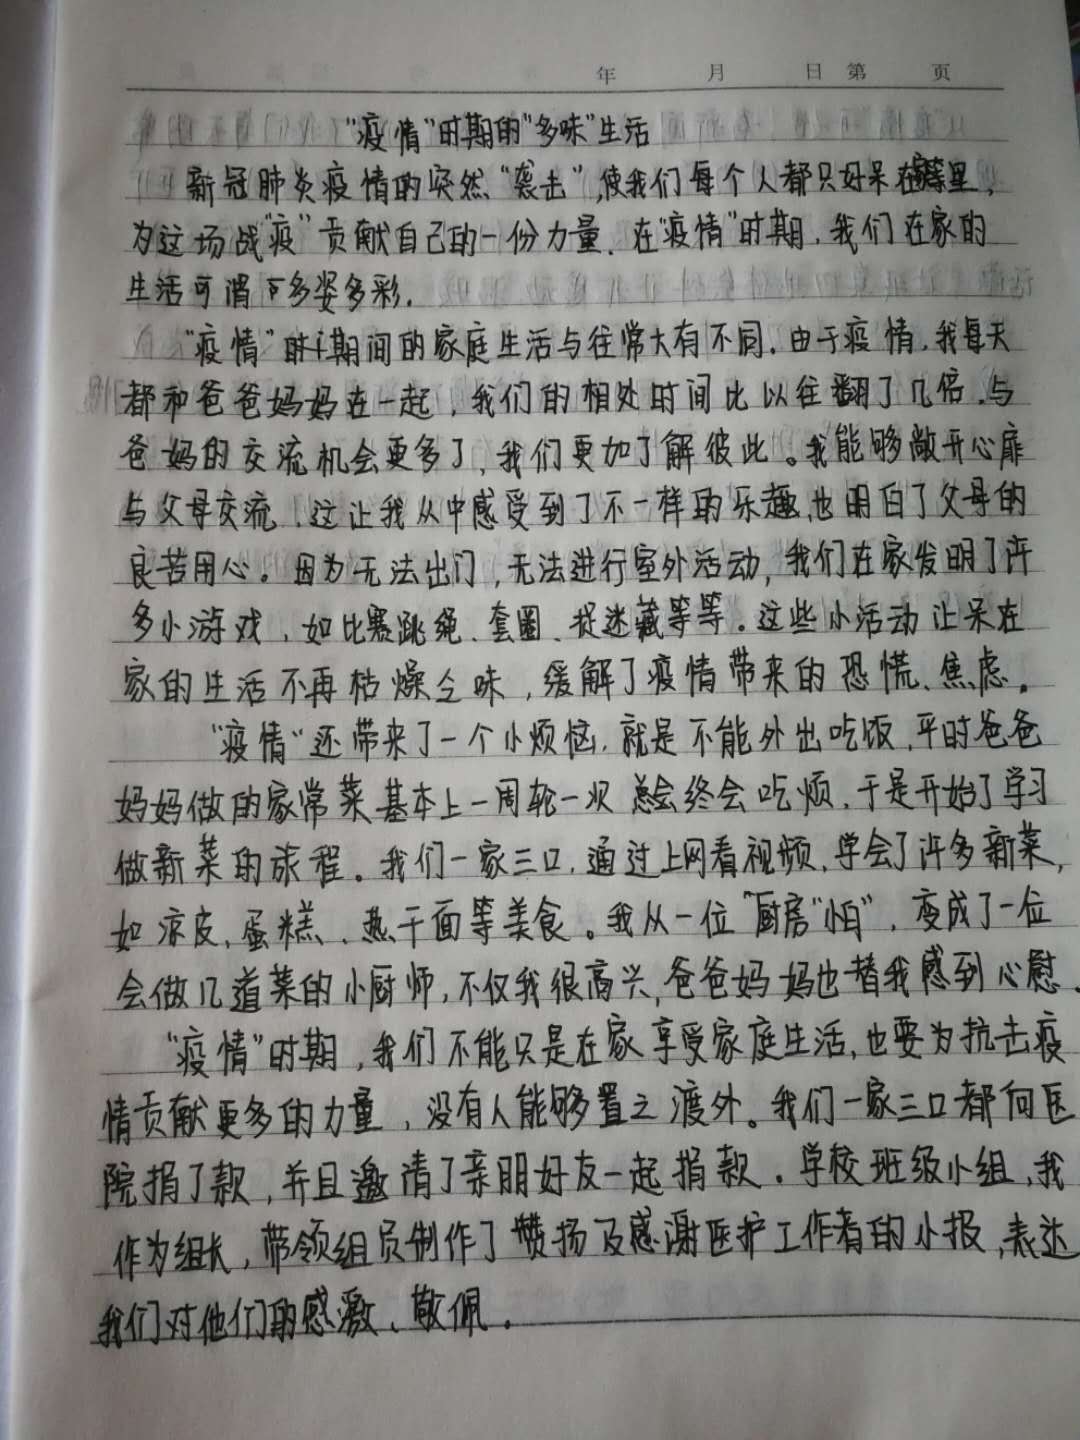 年 月 日 第 页
"疫情"时期的"多味"生活
新冠肺炎疫情的突然"袭击",使我们每个人都只好呆在家里,
为这场战"疫"贡献自己的一份力量。在"疫情"时期,我们在家的
生活可谓多姿多彩。
"疫情"时期间的家庭生活与往常大有不同。由于疫情,我每天
都和爸爸妈妈在一起,我们的相处时间比以往翻了几倍。与
爸妈的交流机会更多了,我们更加了解彼此。我能够敞开心扉
与父母交流,这让我从中感受到了不一样的乐趣,也明白了父母的
良苦用心。因为无法出门,无法进行室外活动,我们在家发明了许
多小游戏,如比赛跳绳、套圈、捉迷藏等等。这些小活动让呆在
家的生活不再枯燥乏味,缓解了疫情带来的恐慌、焦虑。
"疫情"还带来了一个小烦恼,就是不能外出吃饭,平时爸爸
妈妈做的家常菜基本上一周轮一次 总会终会吃烦,于是开始了学习
做新菜的旅程。我们一家三口,通过上网看视频,学会了许多新菜,
如凉皮、蛋糕、热干面等美食。我从一位"厨房"小白",变成了一位
会做几道菜的小厨师,不仅我很高兴,爸爸妈妈也替我感到心慰。
"疫情"时期,我们不能只是在家享受家庭生活,也要为抗击疫
情贡献更多的力量,没有人能够置之渡外。我们一家三口都向医
院捐了款,并且邀请了亲朋好友一起捐款。学校班级小组,我
作为组长,带领组员制作了赞扬及感谢医护工作者的小报,表达
我们对他们的感激、敬佩。